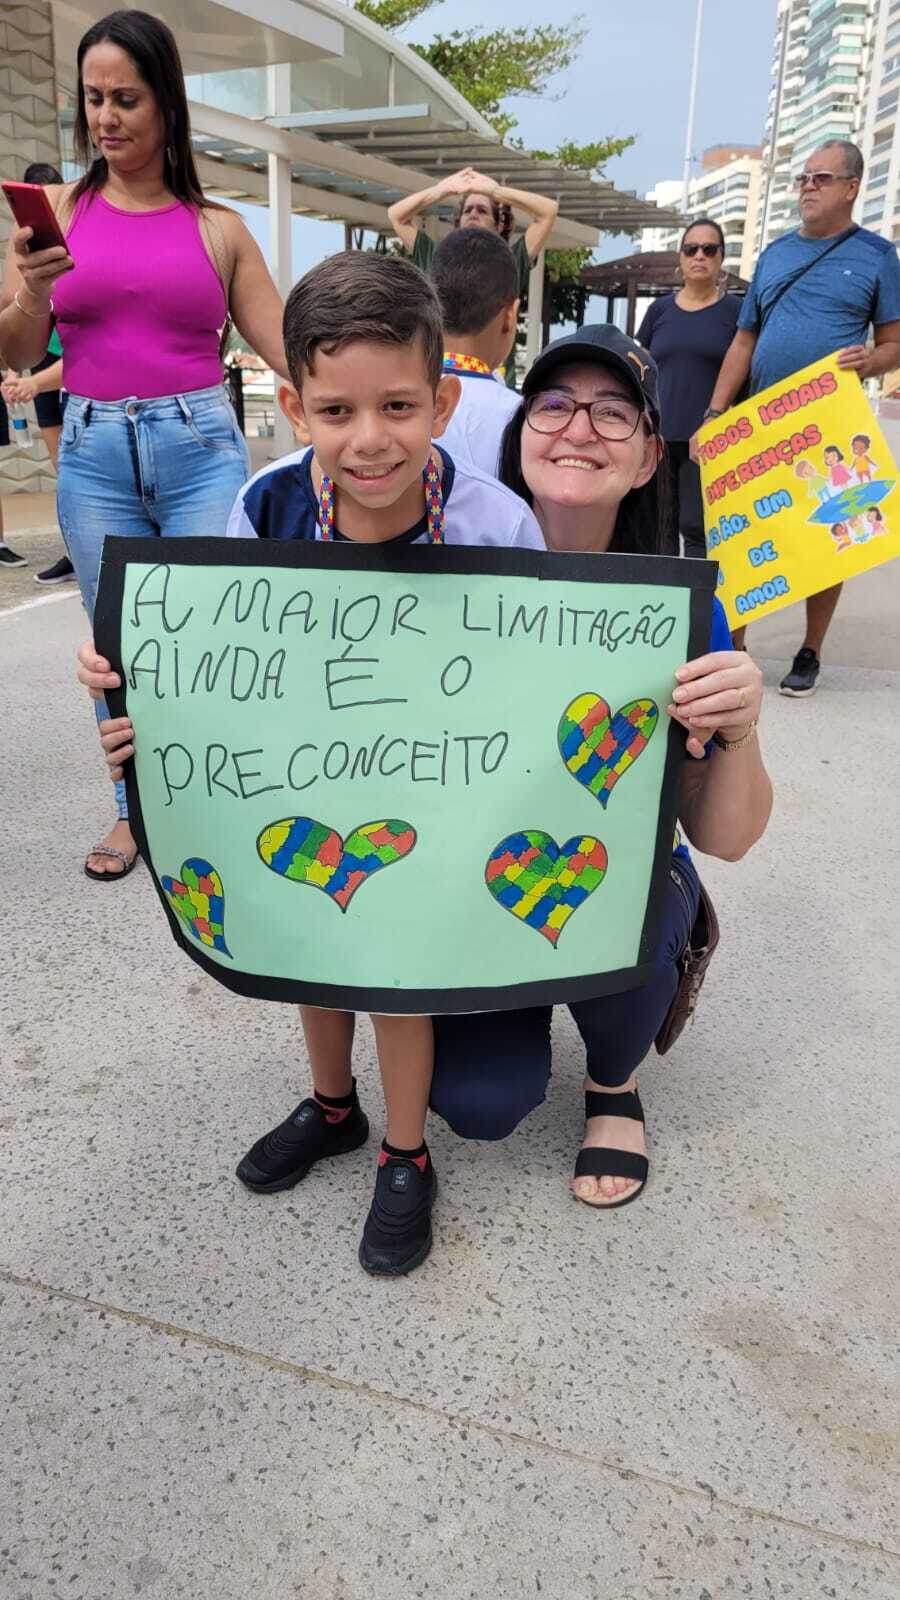 A MAiOR LiMiTAÇÃO
AiNDA É O
PRECONCEiTO.
TODOS IGUAIS
DIFERENÇAS
ÃO: UM
DE
AMOR